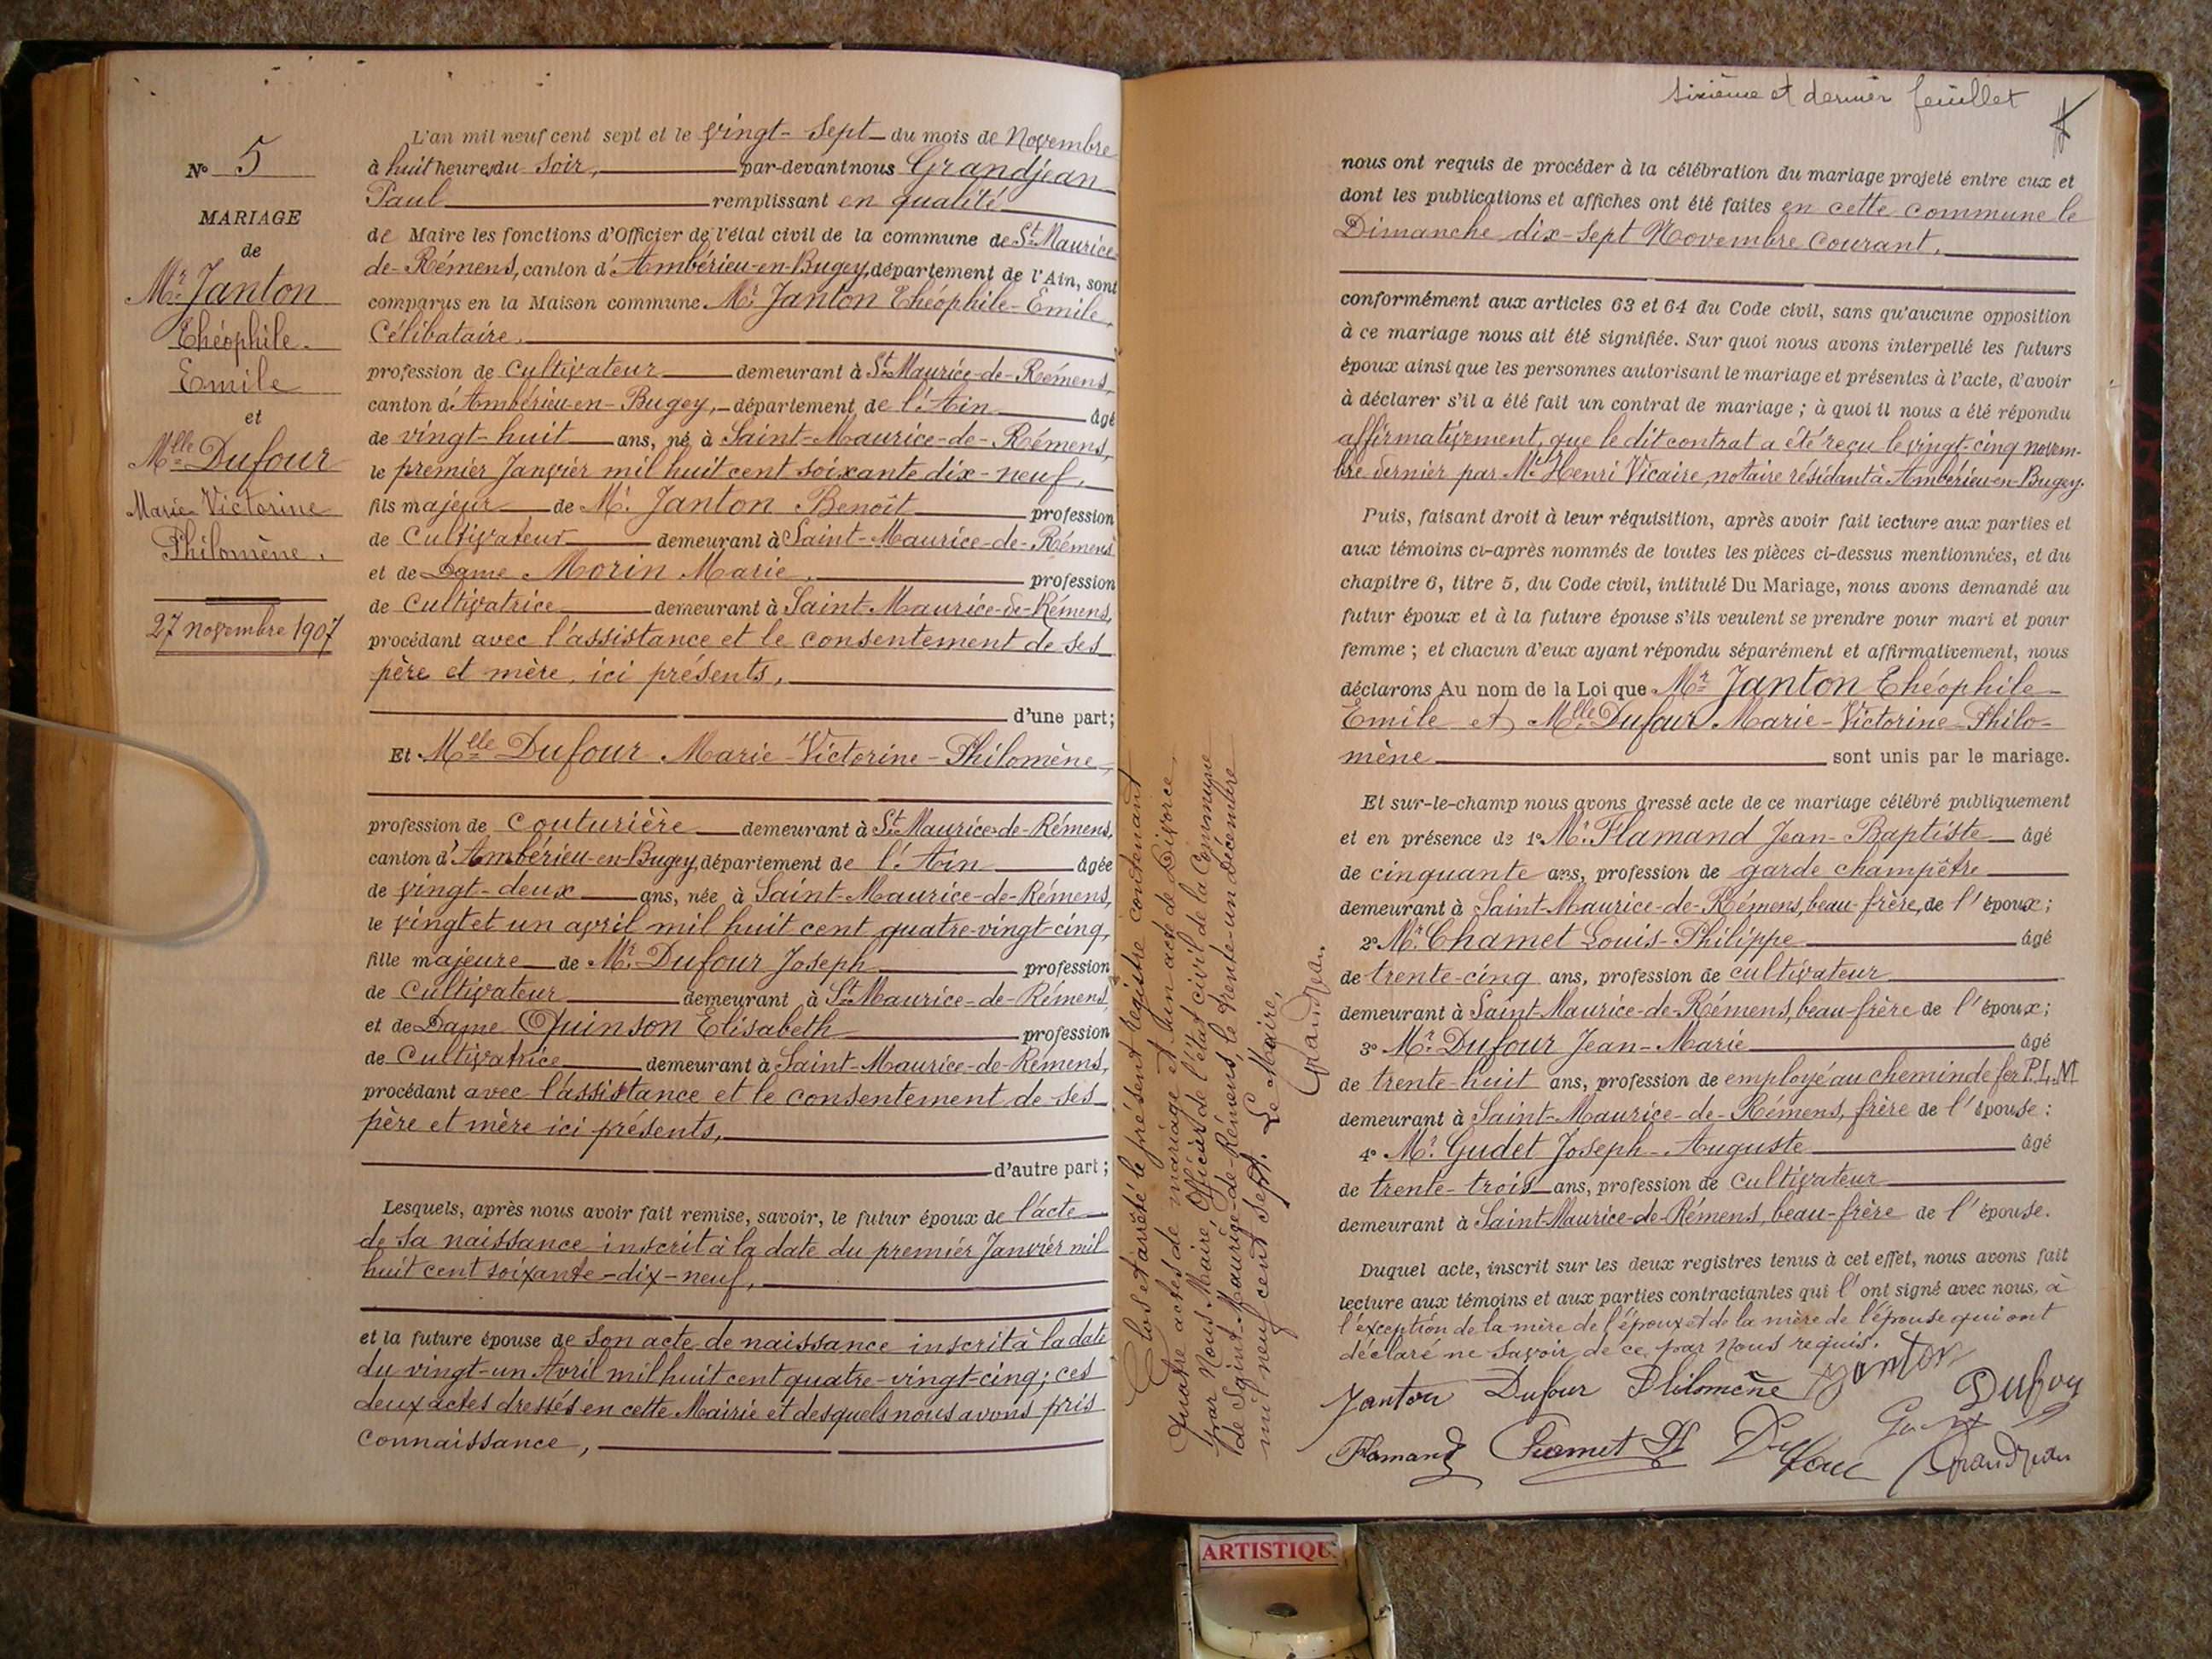 N° 5
MARIAGE
de
Mr. Janton
Théophile.
Emile
et
Mlle Dufour
Marie-Victorine
Philomène.
27 novembre 1907
L'an mil neuf cent sept et le vingt-sept du mois de Novembre
à huit heures du soir, par-devant nous Grandjean
Paul remplissant en qualité
de Maire les fonctions d'Officier de l'état civil de la commune de St-Maurice-
de-Rémens, canton d'Ambérieu-en-Bugey, département de l'Ain, sont
comparus en la Maison commune Mr. Janton Théophile-Emile,
Célibataire,
profession de Cultivateur demeurant à St-Maurice-de-Rémens,
canton d'Ambérieu-en-Bugey, département de l'Ain âgé
de vingt-huit ans, né à Saint-Maurice-de-Rémens,
le premier Janvier mil huit cent soixante dix-neuf,
fils majeur de Mr. Janton Benoît profession
de Cultivateur demeurant à Saint-Maurice-de-Rémens
et de Dame Morin Marie, profession
de Cultivatrice demeurant à Saint-Maurice-de-Rémens,
procédant avec l'assistance et le consentement de ses
père et mère, ici présents,
d'une part;
Et Mlle Dufour Marie-Victorine-Philomène,
profession de Couturière demeurant à St-Maurice-de-Rémens,
canton d'Ambérieu-en-Bugey, département de l'Ain âgée
de vingt-deux ans, née à Saint-Maurice-de-Rémens,
le vingt et un avril mil huit cent quatre-vingt-cinq,
fille majeure de Mr. Dufour Joseph profession
de Cultivateur demeurant à St-Maurice-de-Rémens
et de Dame Quinson Elisabeth profession
de Cultivatrice demeurant à Saint-Maurice-de-Rémens,
procédant avec l'assistance et le consentement de ses
père et mère ici présents,
d'autre part;
Lesquels, après nous avoir fait remise, savoir, le futur époux de l'acte
de sa naissance inscrit à la date du premier Janvier mil
huit cent soixante-dix-neuf,
et la future épouse de son acte de naissance inscrit à la date
du vingt-un Avril mil huit cent quatre-vingt-cinq; ces
deux actes dressés en cette Mairie et desquels nous avons pris
connaissance,
Clos et arrêté le présent registre contenant
quatre actes de mariage et un acte de Divorce,
par Nous Maire, Officier de l'état civil de la Commune
de Saint-Maurice-de-Rémens, le trente-un décembre
mil neuf cent sept. Le Maire,
Grandjean.
sixième et dernier feuillet
nous ont requis de procéder à la célébration du mariage projeté entre eux et
dont les publications et affiches ont été faites en cette commune le
Dimanche dix-sept Novembre Courant,
conformément aux articles 63 et 64 du Code civil, sans qu'aucune opposition
à ce mariage nous ait été signifiée. Sur quoi nous avons interpellé les futurs
époux ainsi que les personnes autorisant le mariage et présentes à l'acte, d'avoir
à déclarer s'il a été fait un contrat de mariage; à quoi il nous a été répondu
affirmativement, que le dit contrat a été reçu le vingt-cinq novem-
bre dernier par Me Henri Vicaire, notaire résidant à Ambérieu-en-Bugey.
Puis, faisant droit à leur réquisition, après avoir fait lecture aux parties et
aux témoins ci-après nommés de toutes les pièces ci-dessus mentionnées, et du
chapitre 6, titre 5, du Code civil, intitulé Du Mariage, nous avons demandé au
futur époux et à la future épouse s'ils veulent se prendre pour mari et pour
femme; et chacun d'eux ayant répondu séparément et affirmativement, nous
déclarons Au nom de la Loi que Mr Janton Théophile-
Emile et Mlle Dufour Marie-Victorine-Philo-
mène sont unis par le mariage.
Et sur-le-champ nous avons dressé acte de ce mariage célébré publiquement
et en présence de 1° Mr. Flamand Jean-Baptiste âgé
de cinquante ans, profession de garde champêtre
demeurant à Saint-Maurice-de-Rémens, beau-frère, de l'époux;
2° Mr. Chamet Louis-Philippe âgé
de trente-cinq ans, profession de cultivateur
demeurant à Saint-Maurice-de-Rémens, beau-frère de l'époux;
3° Mr. Dufour Jean-Marie âgé
de trente-huit ans, profession de employé au chemin de fer P.L.M
demeurant à Saint-Maurice-de-Rémens, frère de l'épouse:
4° Mr. Gudet Joseph-Auguste âgé
de trente-trois ans, profession de Cultivateur
demeurant à Saint-Maurice-de-Rémens, beau-frère de l'épouse.
Duquel acte, inscrit sur les deux registres tenus à cet effet, nous avons fait
lecture aux témoins et aux parties contractantes qui l'ont signé avec nous, à
l'exception de la mère de l'époux et de la mère de l'épouse qui ont
déclaré ne savoir de ce par Nous requis.
Janton Dufour Philomène Janton Dufour
Flamand Dufour Grandjean
ARTISTIQUE